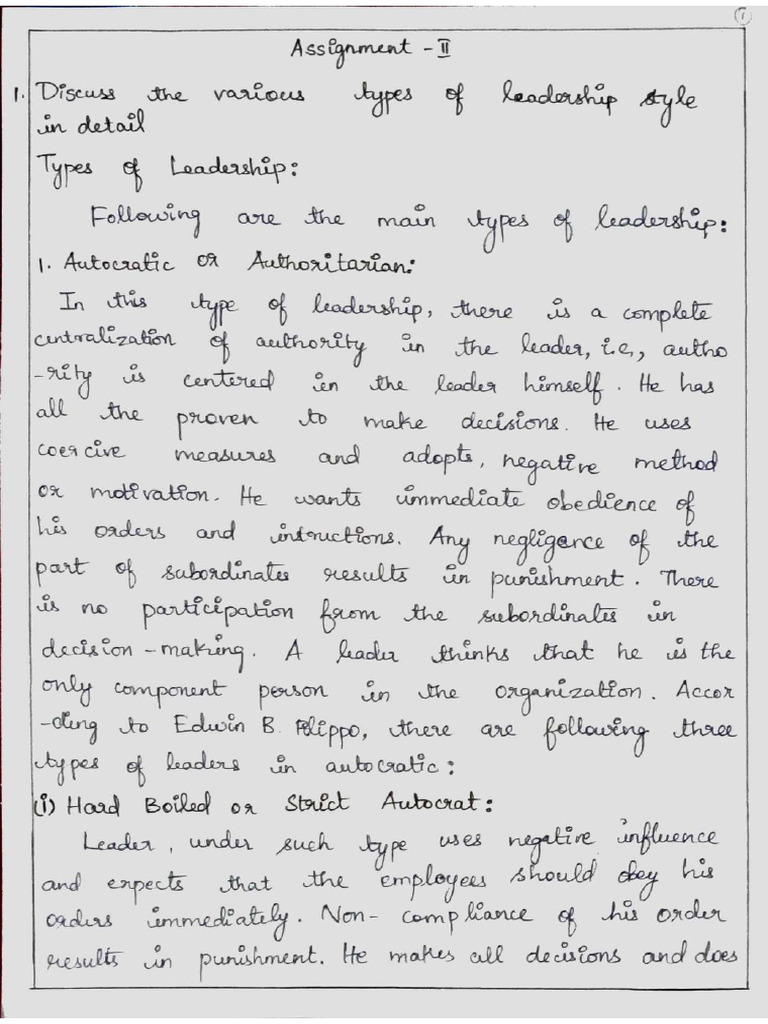 1
Assignment - II
1. Discuss the various types of leadership style
in detail
Types of Leadership:
Following are the main types of leadership:
1. Autocratic or Authoritarian:
In this type of leadership, there is a complete
centralization of authority in the leader, i.e., autho
-rity is centered in the leader himself. He has
all the proven to make decisions. He uses
coercive measures and adopts, negative method
or motivation. He wants immediate obedience of
his orders and instructions. Any negligence of the
part of subordinates results in punishment. There
is no participation from the subordinates in
decision-making. A leader thinks that he is the
only component person in the organization. Accor
-ding to Edwin B. Flippo, there are following three
types of leaders in autocratic:
(i) Hard Boiled or Strict Autocrat:
Leader, under such type uses negative influence
and expects that the employees should obey his
orders immediately. Non-compliance of his order
results in punishment. He makes all decisions and does